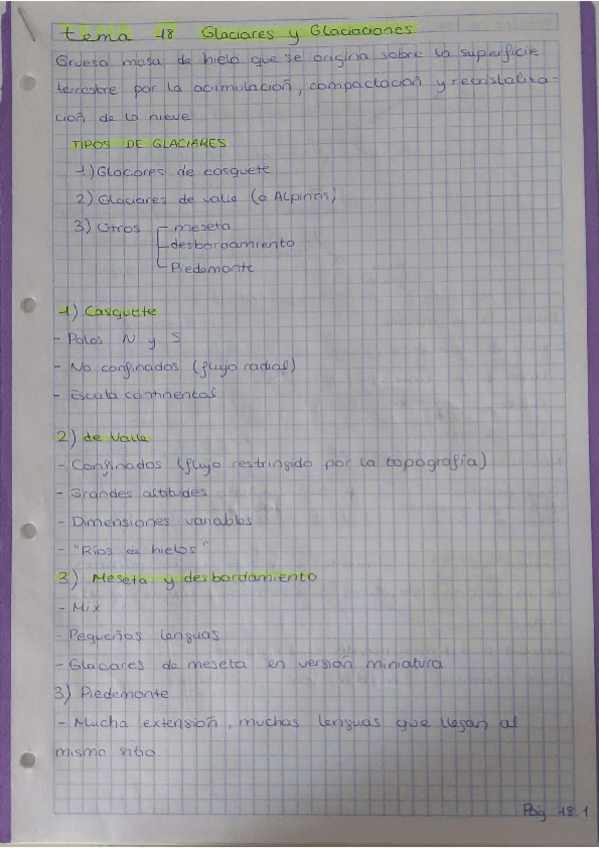 tema 18 Glaciares y Glaciaciones
Grueso masa de hielo que se origina sobre la superficie
terrestre por la acumulación, compactación y recristaliza-
ción de la nieve
TIPOS DE GLACIARES
1) Glacares de casquete
2) Glaciares de valle (o Alpinos)
3) Otros - meseta
- desbordamiento
- Piedemonte
1) Casquete
- Polos N y S
- No confinados (flujo radial)
- Escala continental
2) de Valle
- Confinados (flujo restringido por la topografía)
- Grandes altitudes
- Dimensiones variables
- "Ríos de hielos"
3) Meseta y desbordamiento
- Mix
- Pequeñas lenguas
- Glacares de meseta en versión miniatura
3) Piedemonte
- Mucha extensión, muchas lenguas que llegan al
mismo sitio.
Pág 18.1